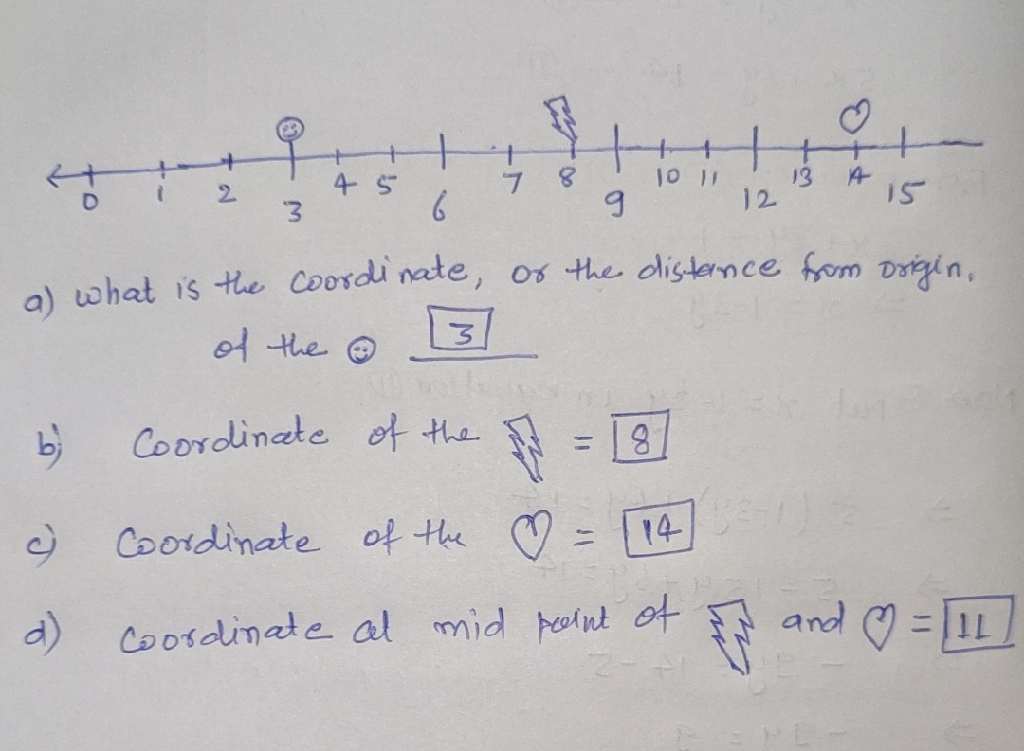 0 1 2 3 4 5 6 7 8 9 10 11 12 13 14 15
a) what is the coordinate, or the distance from origin,
of the 3
b) Coordinate of the = 8
c) Coordinate of the = 14
d) Coordinate at mid point of and = 11